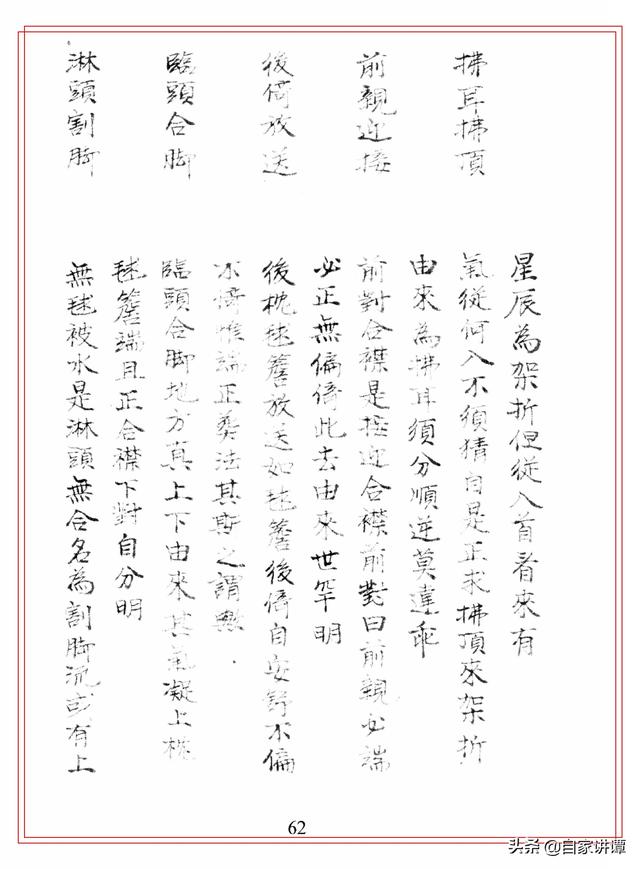 拂耳拂頂
星辰為架折但從入首看來有
氣從何入不須猜自是正求拂頂來架折
由來為拂耳須分順逆莫違乖
前親迎接
前對合襟是接迎合襟前對曰前親必端
必正無偏倚此去由來世罕明
後倚放送
後枕毬簷放送如毬簷後倚自安舒不偏
不倚惟端正葬法其斯之謂歟
臨頭合脚
臨頭合脚地方真上下由來其氣凝上枕
毬簷端且正合襟下對自分明
淋頭割脚
無毬被水是淋頭無合名為割脚流或有上
62
头条 @自家讲谭